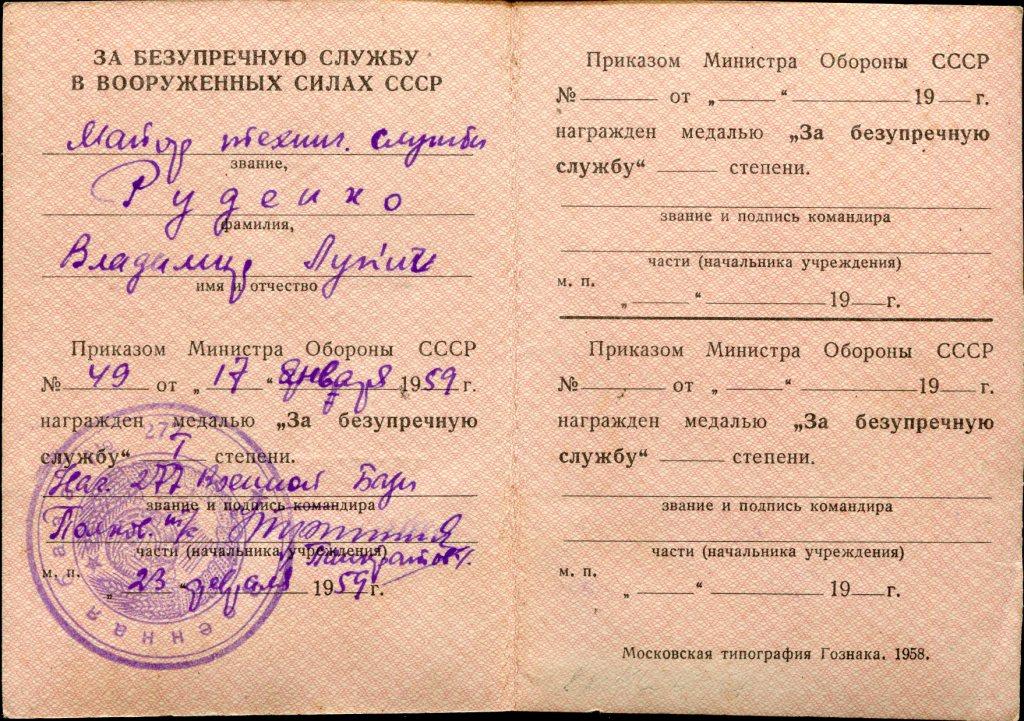 ЗА БЕЗУПРЕЧНУЮ СЛУЖБУ
В ВООРУЖЕННЫХ СИЛАХ СССР
Майор технич. службы
звание,
Руденко
фамилия,
Владимир Лукич
имя и отчество
Приказом Министра Обороны СССР
№ 49 от „17“ января 1959 г.
награжден медалью „За безупречную
службу“ I степени.
Нач. 277 Военной Базы
звание и подпись командира
Полков. т/с
части (начальника учреждения)
м. п.
„23“ февраля 1959 г.
Приказом Министра Обороны СССР
№ от „ “ 19 г.
награжден медалью „За безупречную
службу“ степени.
звание и подпись командира
части (начальника учреждения)
м. п.
„ “ 19 г.
Приказом Министра Обороны СССР
№ от „ “ 19 г.
награжден медалью „За безупречную
службу“ степени.
звание и подпись командира
части (начальника учреждения)
м. п.
„ “ 19 г.
Московская типография Гознака. 1958.